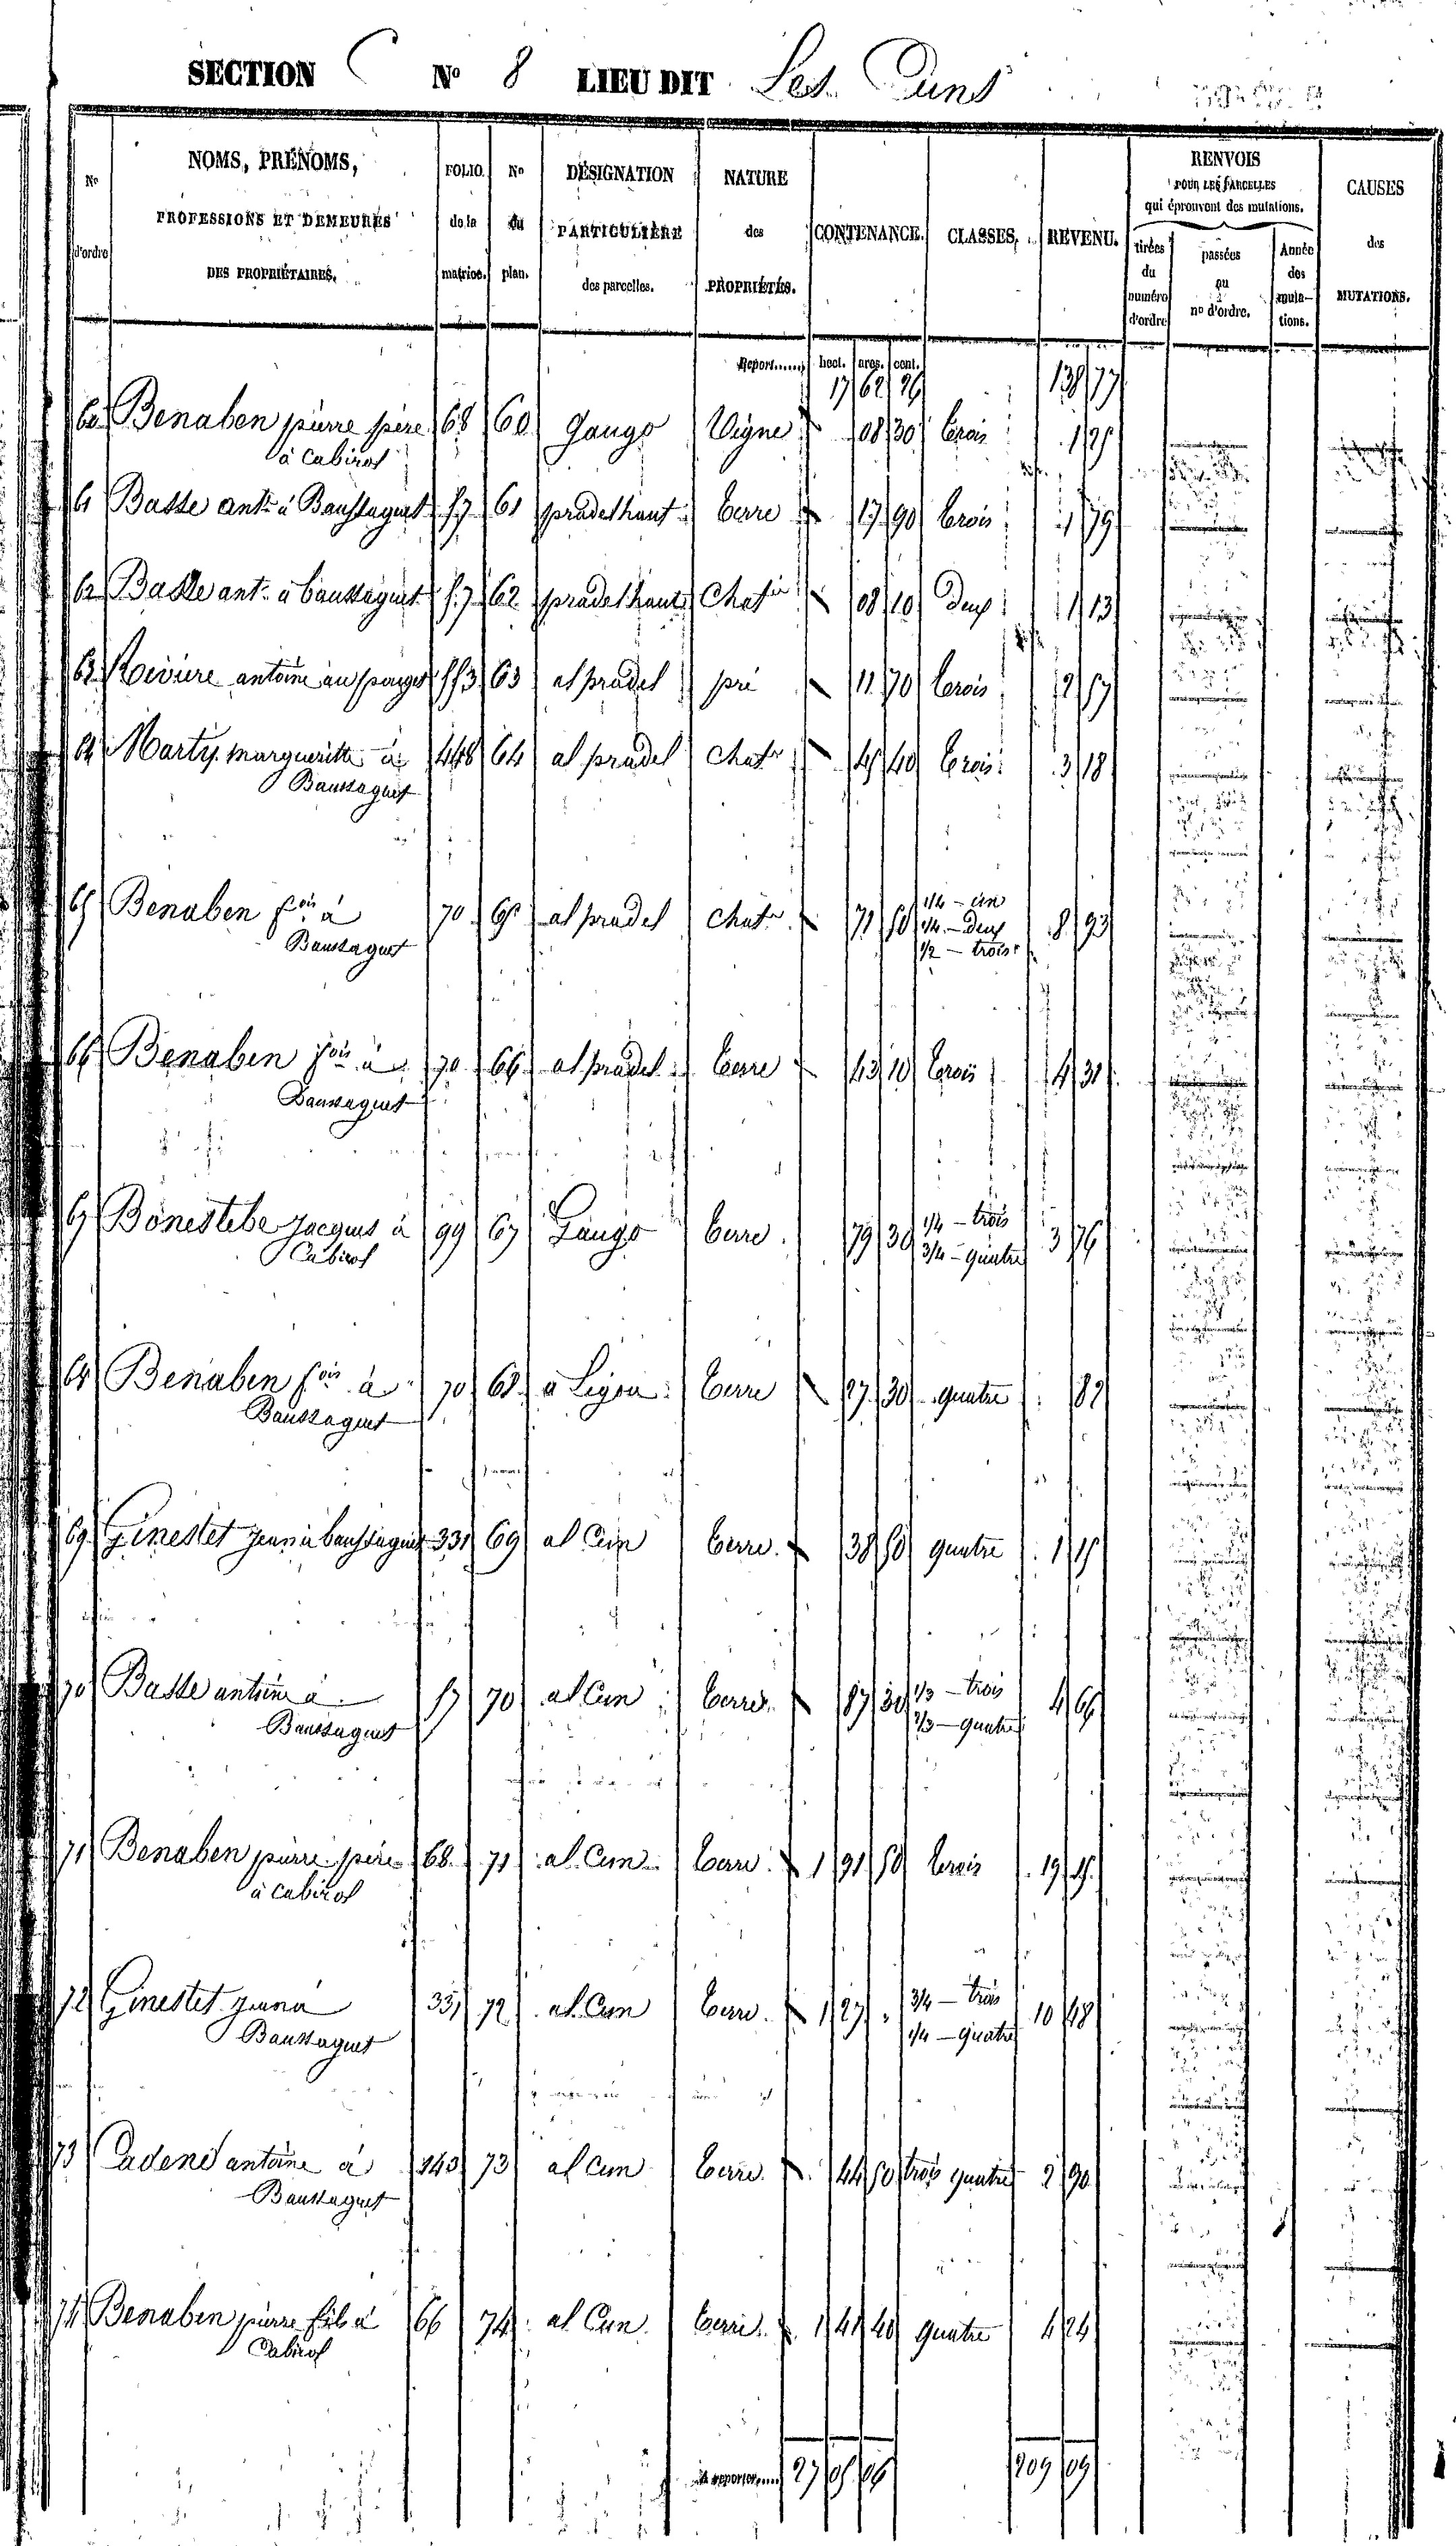 SECTION C N° 8 LIEU DIT Les Cuns
N° d'ordre
NOMS, PRÉNOMS,
PROFESSIONS ET DEMEURES
DES PROPRIÉTAIRES.
FOLIO de la matrice.
N° du plan.
DÉSIGNATION PARTICULIÈRE des parcelles.
NATURE des PROPRIÉTÉS.
CONTENANCE.
CLASSES.
REVENU.
RENVOIS POUR LES PARCELLES qui éprouvent des mutations.
tirées du numéro d'ordre
passées au n° d'ordre.
Année des muta-tions.
CAUSES des MUTATIONS.
Report...... hect. ares. cent.
17 62 26 138 77
60 Benaben pierre père 68 60 Gaugo Vigne 08 30 trois 1 25
à Cabirol
61 Basse ant. à Baussaguet 57 61 pradel haut terre 17 90 trois 1 79
62 Basse ant. à baussaguet 57 62 pradel haut Chat 08 10 deux 1 13
63 Rivière antoine au 553 63 al pradel pré 11 70 trois 2 57
64 Marty margueritte à 448 64 al pradel chat 45 40 trois 3 18
Baussaguet
65 Benaben fois à 70 65 al pradel chat 71 50 1/4 - un 8 93
Baussaguet 1/4 - deux
1/2 - trois
66 Benaben fois à 70 66 al pradel terre 43 10 trois 4 31
Baussaguet
67 Bonestebe Jacques à 99 67 Gaugo terre 79 30 1/4 - trois 3 76
Cabirol 3/4 - quatre
68 Benaben fois à 70 68 terre 27 30 quatre 82
Baussaguet
69 Ginestet Jean à baussaguet 331 69 al Cun terre 38 50 quatre 1 15
70 Basse antoine à 57 70 al Cun terre 87 30 1/3 - trois 4 65
Baussaguet 2/3 - quatre
71 Benaben pierre père 68 71 al Cun terre 1 91 50 trois 19 15
à Cabirol
72 Ginestet Jean à 331 72 al Cun terre 1 27 3/4 - trois 10 48
Baussaguet 1/4 - quatre
73 Cadene antoine à 143 73 al Cun terre 44 50 trois quatre 2 90
Baussaguet
74 Benaben pierre fils à 66 74 al Cun terre 1 41 40 quatre 4 24
Cabirol
A reporter...... 27 05 06 209 09